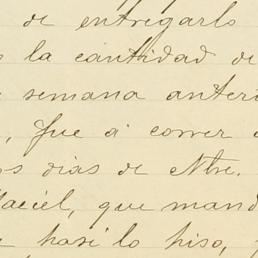 de entregarlo
la cantidad de
semana anteri
, fue á correr
os dias de Nbre.
Maciél, que mand
hasi lo hiso,